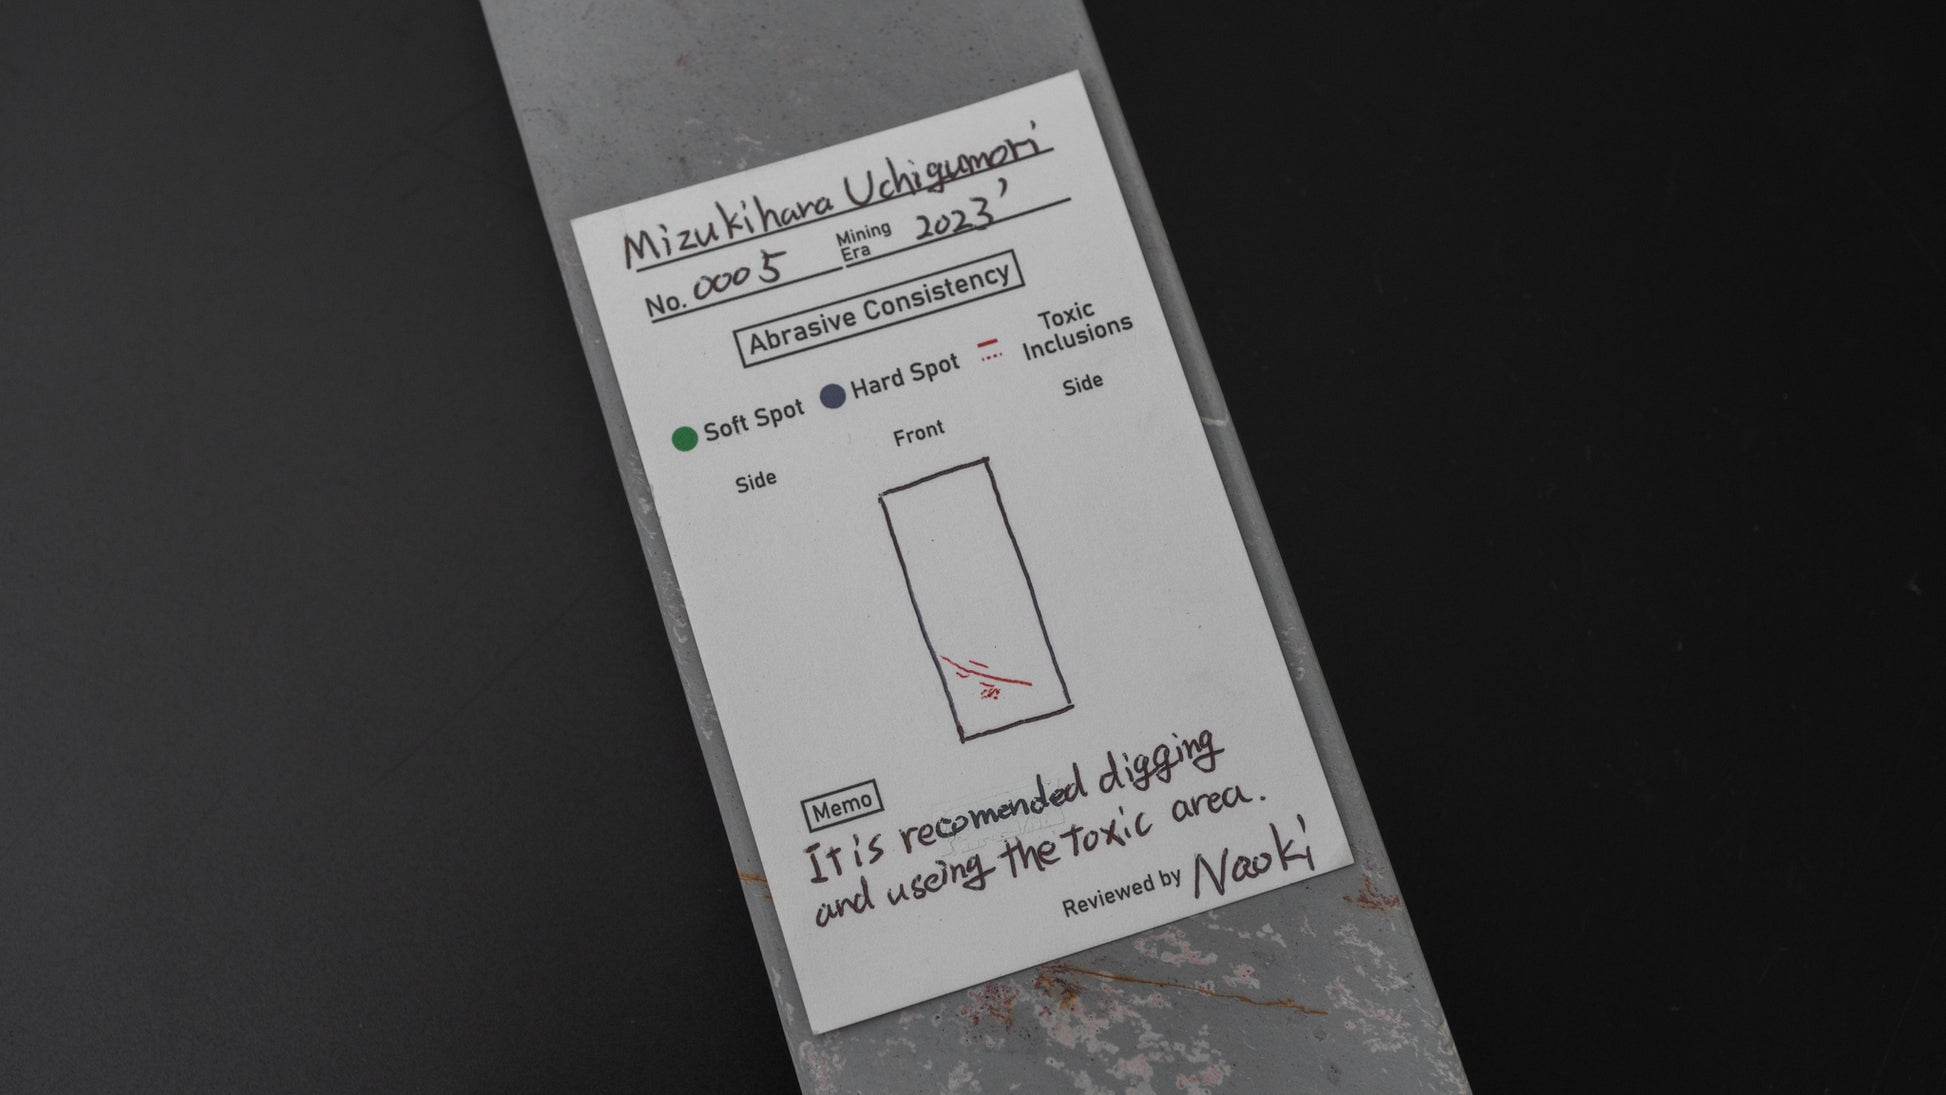 Mizukihara Uchigumori
No. 0005 Mining Era 2023'
Abrasive Consistency
Soft Spot Hard Spot Toxic Inclusions
Side Front Side
Memo
It is recomended digging
and useing the toxic area.
Reviewed by Naoki